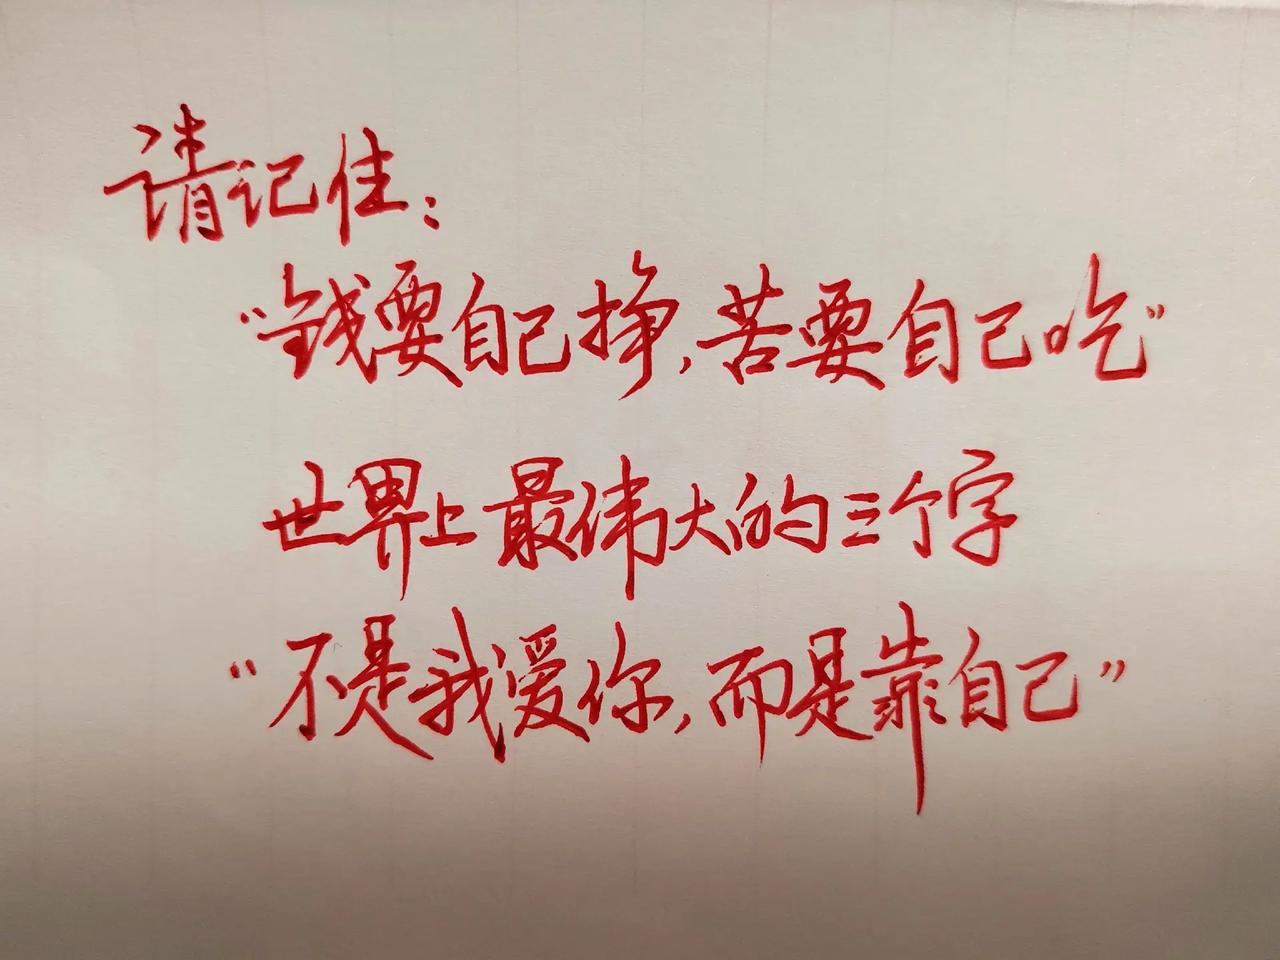 请记住：
“钱要自己挣，苦要自己吃”
世界上最伟大的三个字
“不是我爱你，而是靠自己”